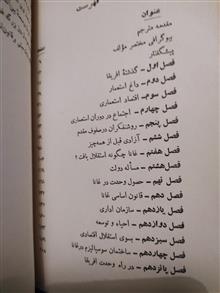 فهرست
عنوان
مقدمه مترجم
بیوگرافی مختصر مؤلف
پیشگفتار
فصل اول – گذشتهٔ افریقا
فصل دوم – داغ استعمار
فصل سوم – اقتصاد استعماری
فصل چهارم – اجتماع در دوران استعماری
فصل پنجم – روشنفکران در صفوف مقدم
فصل ششم – آزادی قبل از همه‌چیز
فصل هفتم – غانا چگونه استقلال یافت؟
فصل هشتم – مسأله دولت
فصل نهم – حصول وحدت در غانا
فصل دهم – قانون اساسی غانا
فصل یازدهم – سازمان اداری
فصل دوازدهم – احیاء و توسعه
فصل سیزدهم – بسوی استقلال اقتصادی
فصل چهاردهم – ساختمان سوسیالیزم در غانا
فصل پانزدهم – در راه وحدت افریقا